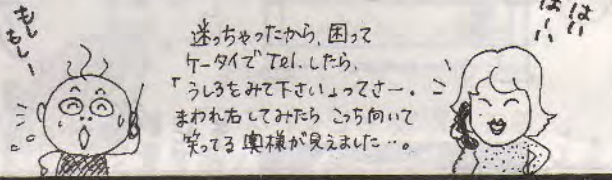 もしもしー
迷っちゃったから、困って
ケータイでTel.したら、
「うしろをみて下さい」ってさー。
まわれ右してみたら こっち向いて
笑ってる奥様が見えました…。
はいはーい